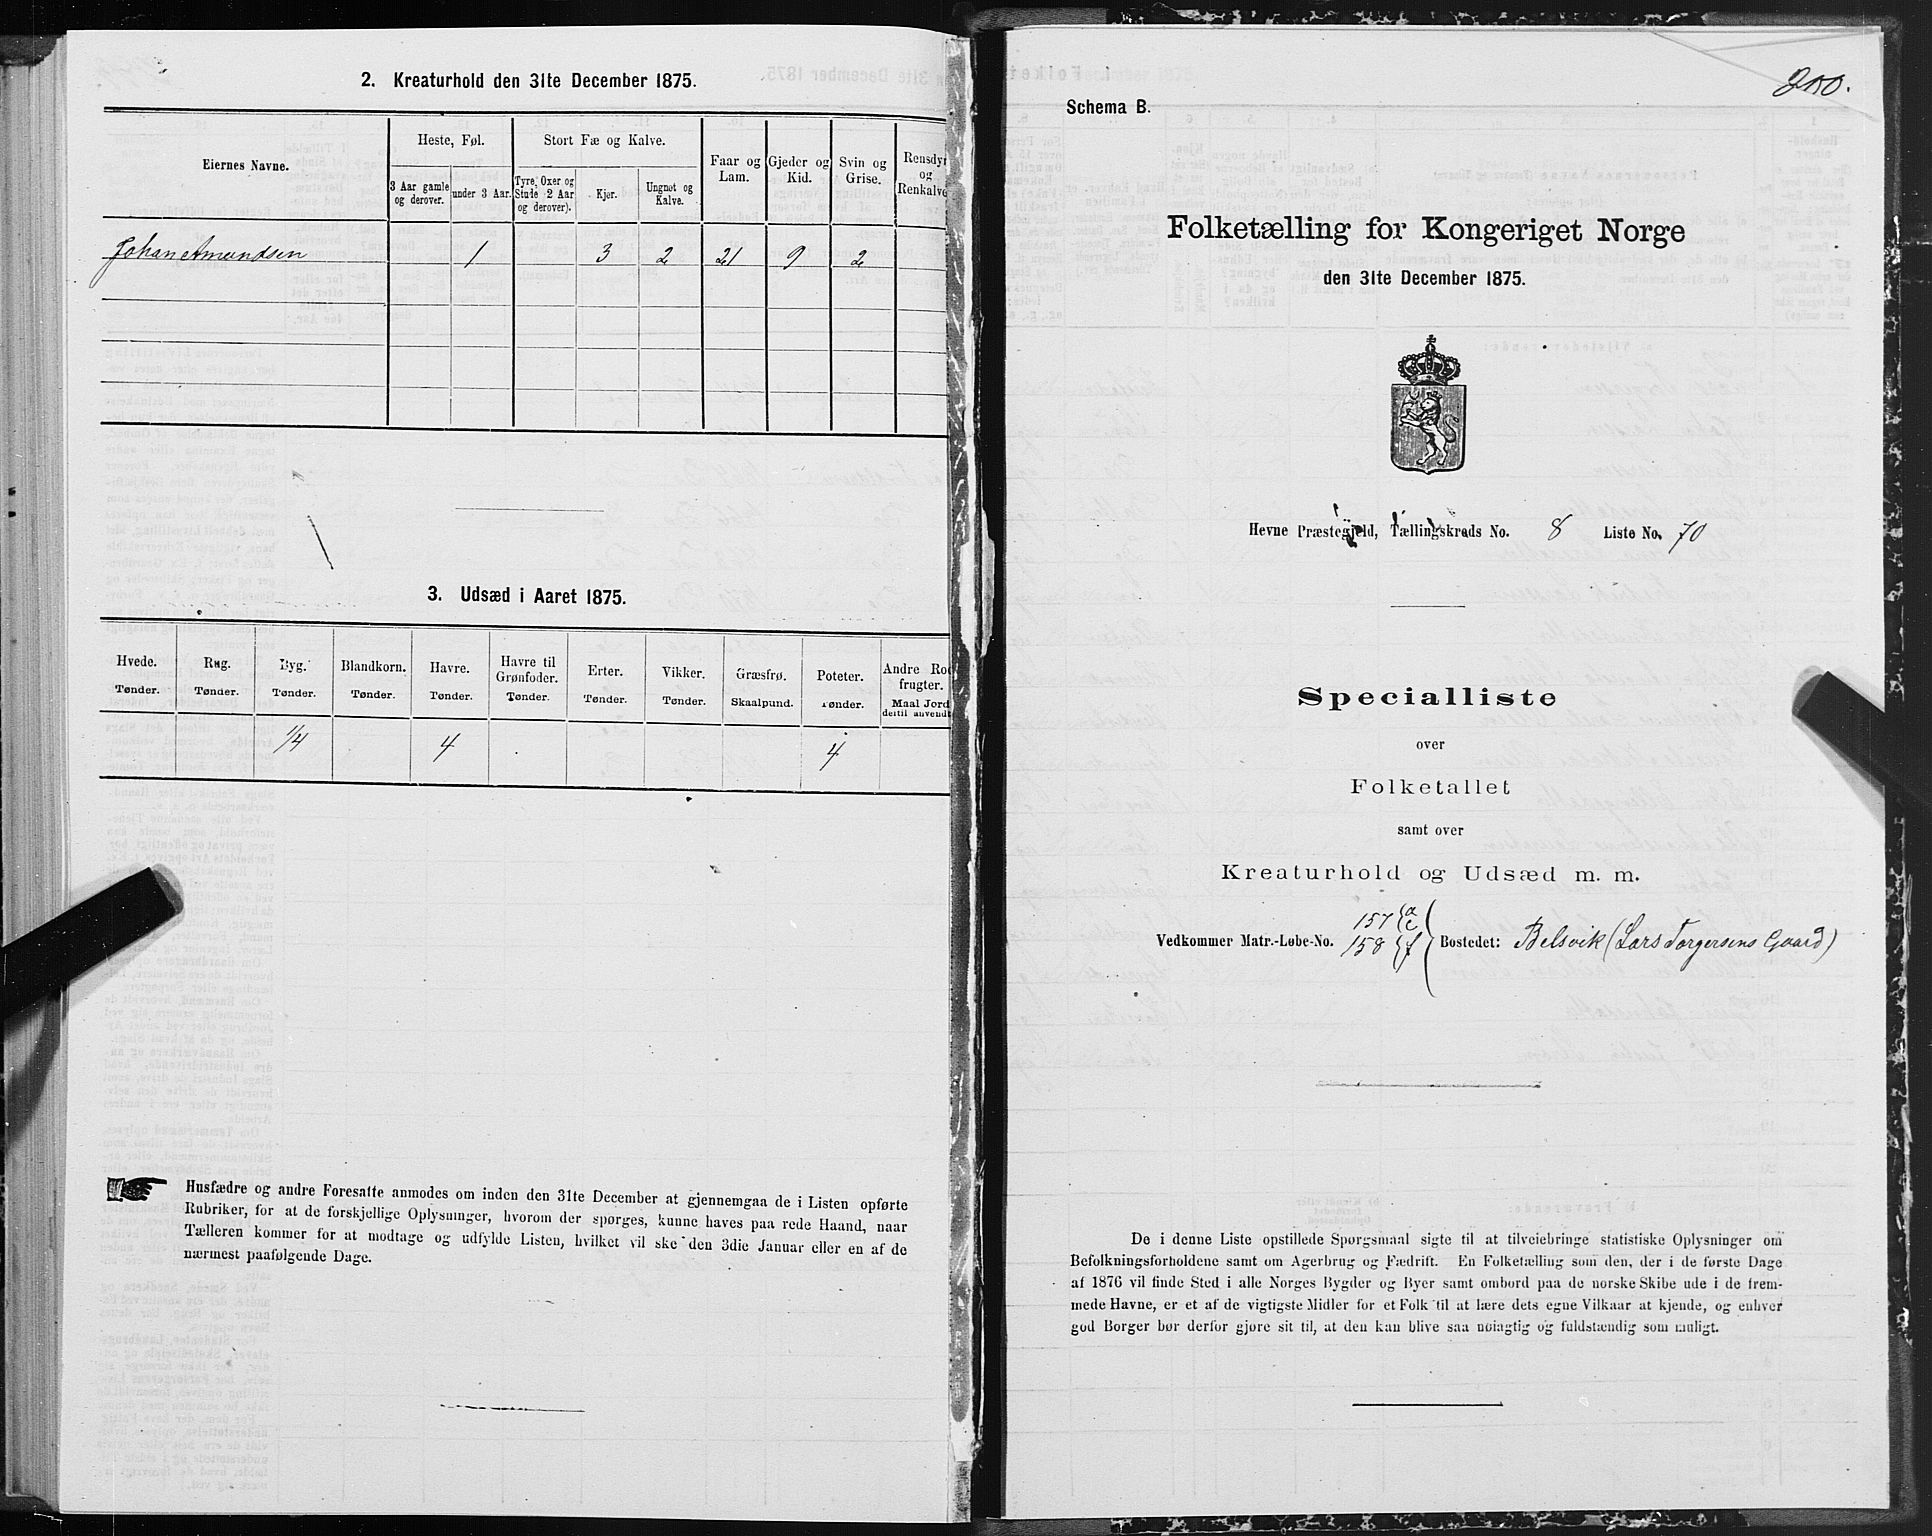 2. Kreaturhold den 31te December 1875.
Eiernes Navne.
Heste, Føl.
Stort Fæ og Kalve.
Faar og Lam.
Gjeder og Kid.
Svin og Grise.
Rensdyr og Renkalve
3 Aar gamle og derover.
under 3 Aar.
Tyre, Oxer og Stude (2 Aar og derover).
Kjør.
Ungnøt og Kalve.
Johan Amundsen 1 3 2 21 9 2
3. Udsæd i Aaret 1875.
Hvede. Rug. Byg. Blandkorn. Havre. Havre til Grønfoder. Erter. Vikker. Græsfrø. Poteter. Andre Rodfrugter.
Tønder. Tønder. Tønder. Tønder. Tønder. Tønder. Tønder. Tønder. Skaalpund. Tønder. Maal Jord dertil anvendt
1/4 4 4
Husfædre og andre Foresatte anmodes om inden den 31te December at gjennemgaa de i Listen opførte
Rubriker, for at de forskjellige Oplysninger, hvorom der spørges, kunne haves paa rede Haand, naar
Tælleren kommer for at modtage og udfylde Listen, hvilket vil ske den 3die Januar eller en af de
nærmest paafølgende Dage.
200.
Schema B.
Folketælling for Kongeriget Norge
den 31te December 1875.
Hevne Præstegjeld, Tællingskreds No. 8 Liste No. 70
Specialliste
over
Folketallet
samt over
Kreaturhold og Udsæd m. m.
Vedkommer Matr.-Løbe-No. 157 {a c 158 {f Bostedet: Belsvik (Lars Torgersens Gaard)
De i denne Liste opstillede Spørgsmaal sigte til at tilveiebringe statistiske Oplysninger om
Befolkningsforholdene samt om Agerbrug og Fædrift. En Folketælling som den, der i de første Dage
af 1876 vil finde Sted i alle Norges Bygder og Byer samt ombord paa de norske Skibe ude i de frem-
mede Havne, er et af de vigtigste Midler for et Folk til at lære dets egne Vilkaar at kjende, og enhver
god Borger bør derfor gjøre sit til, at den kan blive saa nøiagtig og fuldstændig som muligt.